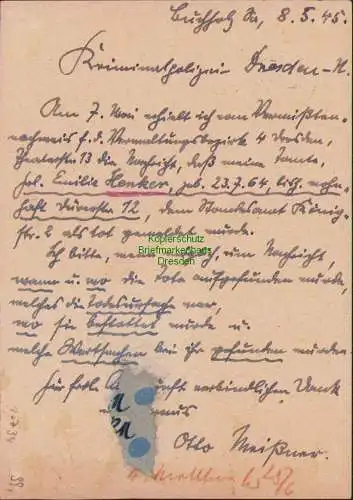 Buchholz Sa, 8. 5. 45.
Kriminalpolizei Dresden-N.
Am 7. Mai erhielt ich vom Vermißten-
nachweis f. d. Verwaltungsbezirk 4 Dresden,
Theaterstr. 13 die Nachricht, daß meine Tante,
Emilie Henker, geb. 23.7.64, bish. wohn-
haft Dürerstr. 12, dem Standesamt König-
str. 2 als tot gemeldet wurde.
Ich bitte, wenn möglich, um Nachricht,
wann u. wo die Tote aufgefunden wurde,
welches die Todesursache war,
wo sie bestattet wurde u.
welche Wertsachen bei ihr gefunden wurden
Für frdl. verbindlichen Dank
Otto Meißner.
Kopierschutz
Briefmarkenhaus
Dresden